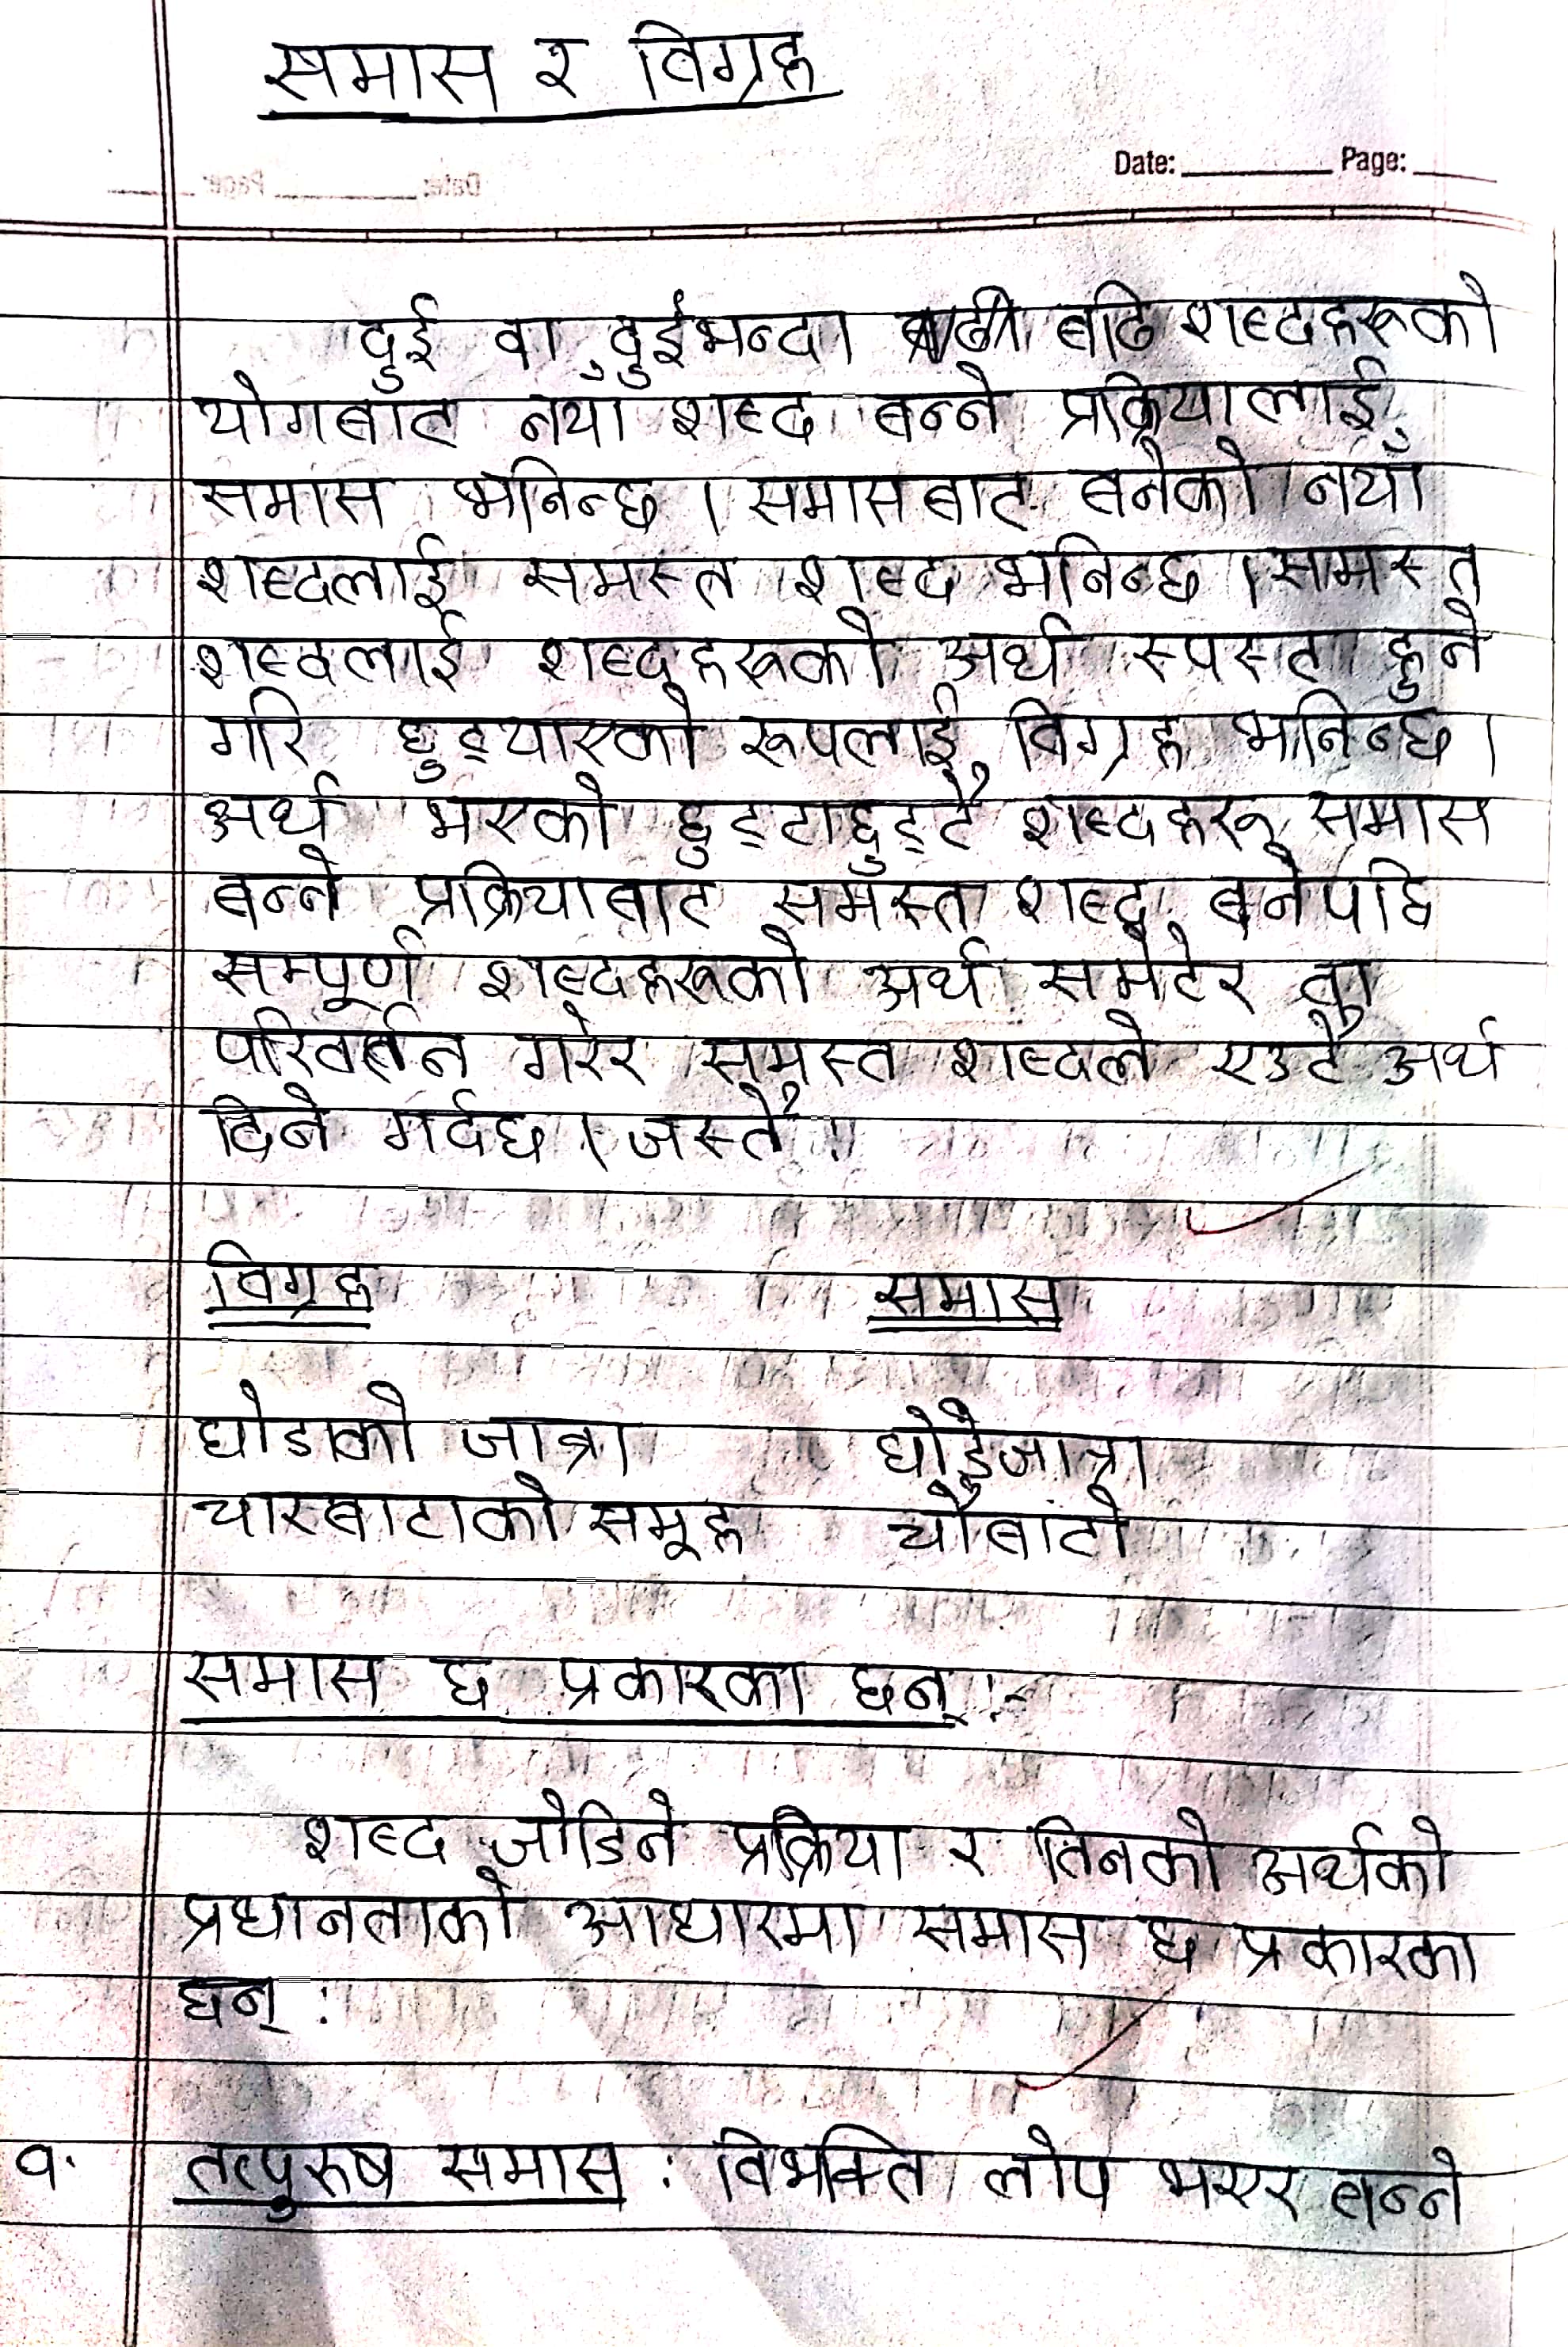 समास र विग्रह
Date: Page:
दुई वा दुईभन्दा बढि शब्दहरूको
योगबाट नयाँ शब्द बन्ने प्रक्रियालाई
समास भनिन्छ । समासबाट बनेको नयाँ
शब्दलाई समस्त शब्द भनिन्छ । समस्त
शब्दलाई शब्दहरूको अर्थ स्पस्ट हुने
गरि छुट्याएको रूपलाई विग्रह भनिन्छ ।
अर्थ भएको छुट्टाछुट्टै शब्दहरू समास
बन्ने प्रक्रियाबाट समस्त शब्द बनेपछि
सम्पूर्ण शब्दहरूको अर्थ समेटेर वा
परिवर्तन गरेर समस्त शब्दले एउटै अर्थ
दिने गर्दछ । जस्तै :
विग्रह समास
घोडाको जात्रा घोडेजात्रा
चारबाटाको समूह चौबाटो
समास छ प्रकारका छन् :-
शब्द जोडिने प्रक्रिया र तिनको अर्थको
प्रधानताको आधारमा समास छ प्रकारका
छन् :
१. तत्पुरुष समास : विभक्ति लोप भएर बन्ने